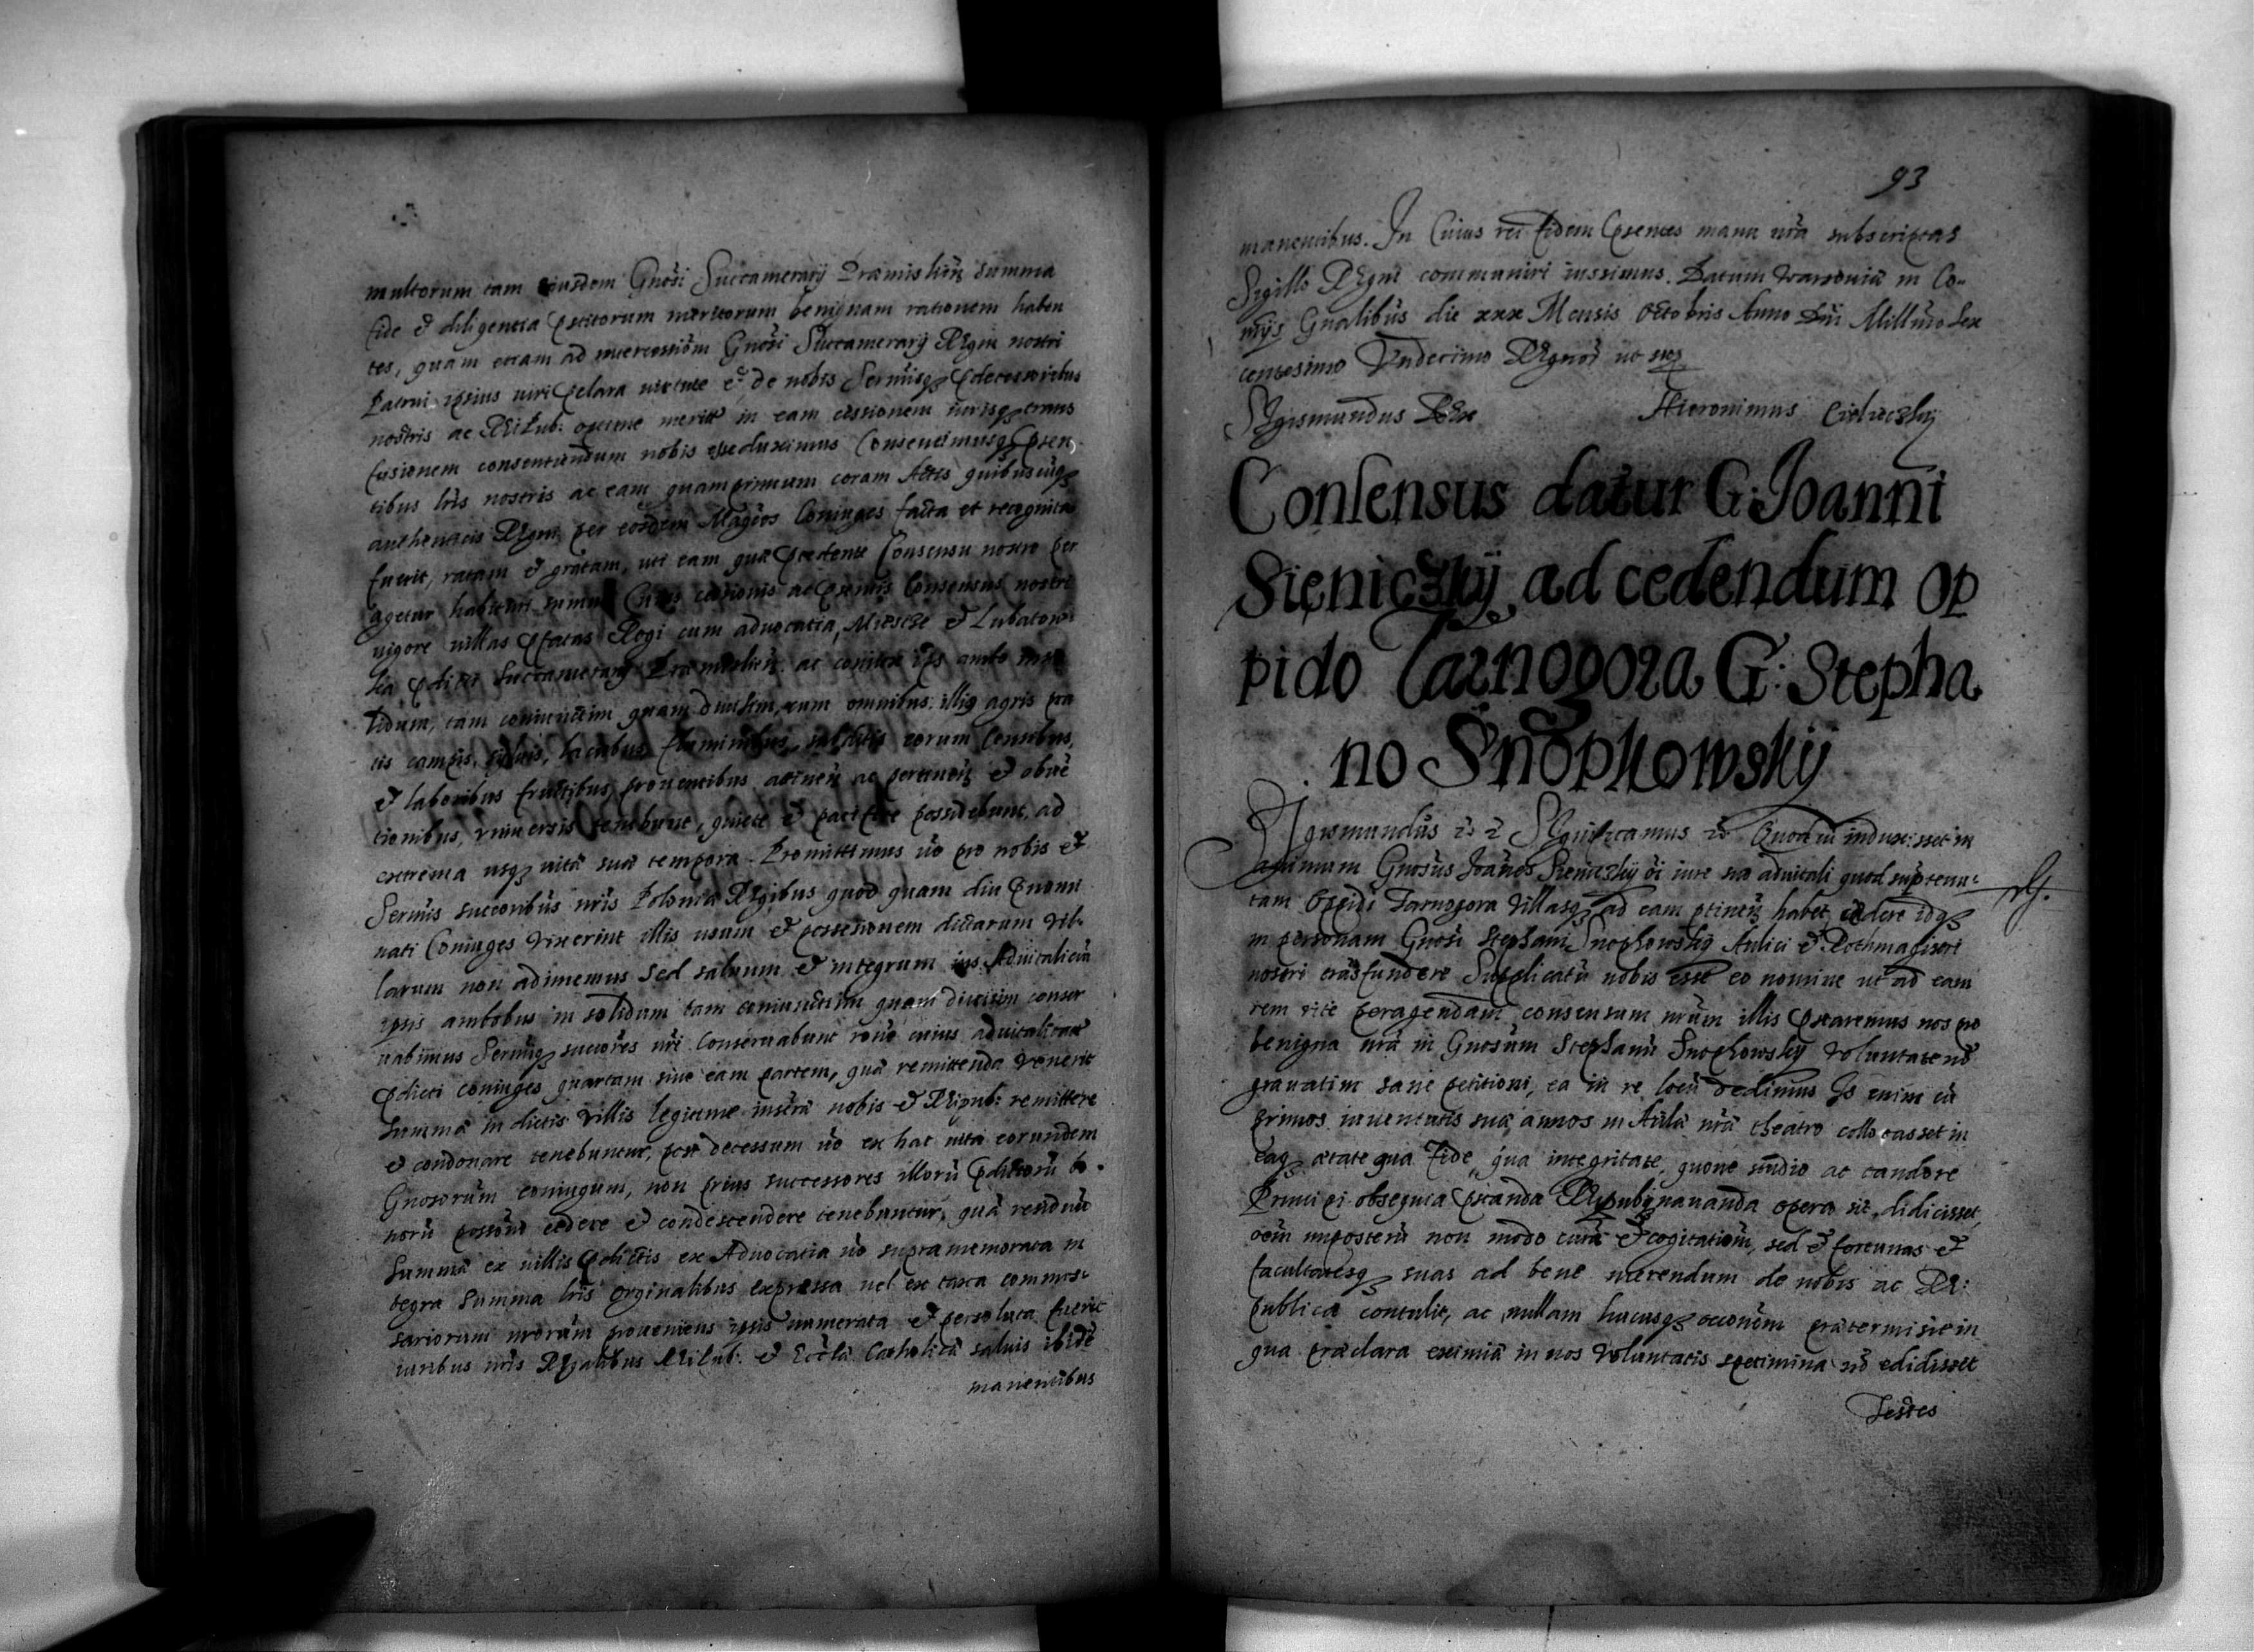 multorum tam eiusdem Gnosi Succamerarij Præmislien̄ summa
fide & diligentia pstitorum meritorum benignam rationem haben
tes, quam etiam ad intercessiōm Gnosi Succamerarij Regni nostri
Patrui ipsius viri pclara virtute & de nobis Sermisq pdecessoribus
nostris ac Reipub: optime meriti in eam cessionem iurisq trans
fusionem consentiendum nobis esse duximus Consentimusq psen
tibus lris nostris ac eam quamprimum coram Actis quibuscūq
authenticis Regni per eosdem Magcos Coniuges facta et recognita
fuerit, ratam & gratam, uti eam quæ præcedente Consensu nostro per
agetur habituri sumus Cuius cessionis ac psentis Consensus nostri
vigore villas pfatas Rogi cum advocatia, Miescze & Lubatow
ka pdicti Succamerarij Præmislien̄. ac coniux ips ambo in so
lidum, tam coniunctim quam divisim, cum omnibus illis agris pra
tis campis, siluis, lacubus, fluminibus, subditis eorum Censibus,
& laboribus fructibus prouentibus attinen̄ ac pertinen̄ & obuē
tionibus, vniuersis tenebunt, quiete & pacifice possidebunt, ad
extrema usq vitæ suæ tempora. Promittimus uō pro nobis &
Sermis succoribus nris Poloniæ Regibus quod quam diu pnomi
nati Coniuges vixerint illis usum & possessionem dictarum vil-
larum non adimemus sed saluum & integrum ius Aduitaliciū
ipsis ambobus in solidum tam coniunctim quam diuisim conser
uabimus Sermiq succōres nri Conseruabunt rōne cuius aduitalitatis
pdicti coniuges quartam siue eam partem, quæ remittenda venerit
summæ in dictis villis legitime inscrā nobis & Reipub: remittere
& condonare tenebuntur, post decessum uō ex hac vita eorundem
Gnosorum coniugum, non prius successores illorū pdictorū bo-
norū possōni cedere & condescendere tenebuntur, quā residuū
summæ ex villis pdictis ex Aduocatia uō supramemorata in
tegra summa lris orginalibus expressa vel ex taxa commis-
sariorum nrorum proueniens ipsis numerata & persoluta fuerit
iuribus nris Regalibus Reipub: & Eccla Catholicæ saluis ibidē
manentibus
93
manentibus. In Cuius rei fidem psentes manu nrā subscriptas
Sigillo Regni communiri iussimus. Datum Warsouiæ in Co-
mijs Gnalibus die xxx Mensis Octobris Anno Dni Millmo Sex
centesimo Vndecimo Regnor̄ ut sup
Sigismundus Rex Hieronimus Cielieczky
Consensus datur G: Joanni
Sieniczky, ad cedendum op
pido Tarnogora G: Stepha
no Snopkowsky
Sigismundus Significamus Quod cū indux:sset in
animum Gnosus Joānes Sieniczky oi iure suo aduitali quod sup tenu-
tam Oppidi Tarnogora villasq ad eam ptinen̄ habet cedere idq
in personam Gnosi Stephani Snopkowsky Aulici & Rothmagistri
nostri trāsfundere Supplicatū nobis esset eo nomine ut ad eam
rem rite peragendam consensum nrum illis pstaremus nos pro
benigna nrā in Gnosum Stephanū Snopkowsky Voluntate nō
grauatim sane petitioni, ea in re locū dedimus Is enim cū
primos iuuentutis suæ annos in Aulæ nræ theatro collocasset in
eaq ætate qua fide, qua integritate, quove studio ac candore
Principi obsequia pstanda Reipubq nauanda opera sit, didicisset,
oēm imposterū non modo curā & cogitatiōm, sed & fortunas &
facultatesq suas ad bene merendum de nobis ac Re:
publica contulit, ac nullam hucusq occōnem prætermisit in
qua præclara eximiæ in nos Voluntatis specimina nō edidisset
Testes